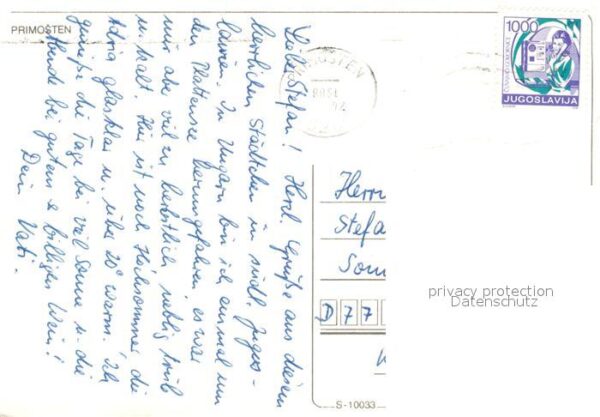 PRIMOŠTEN
Lieber Stefan! Herzl. Grüße aus diesem
herrlichen Städtchen in südl. Jugos-
lawien. In Ungarn bin ich einmal um
den Plattensee herumgefahren, es war
mir aber viel zu herbstlich neblig trüb
u. kalt. Hier ist noch Hochsommer die
Adria glasklar u. über 20° warm. Ich
genieße die Tage bei viel Sonne u. die
Abende bei gutem & billigen Wein!
Dein Vati.
PRIMOŠTEN
1000
JUGOSLAVIJA
Herrn
Stefa
Som
D 7 7
privacy protection
Datenschutz
S-10033